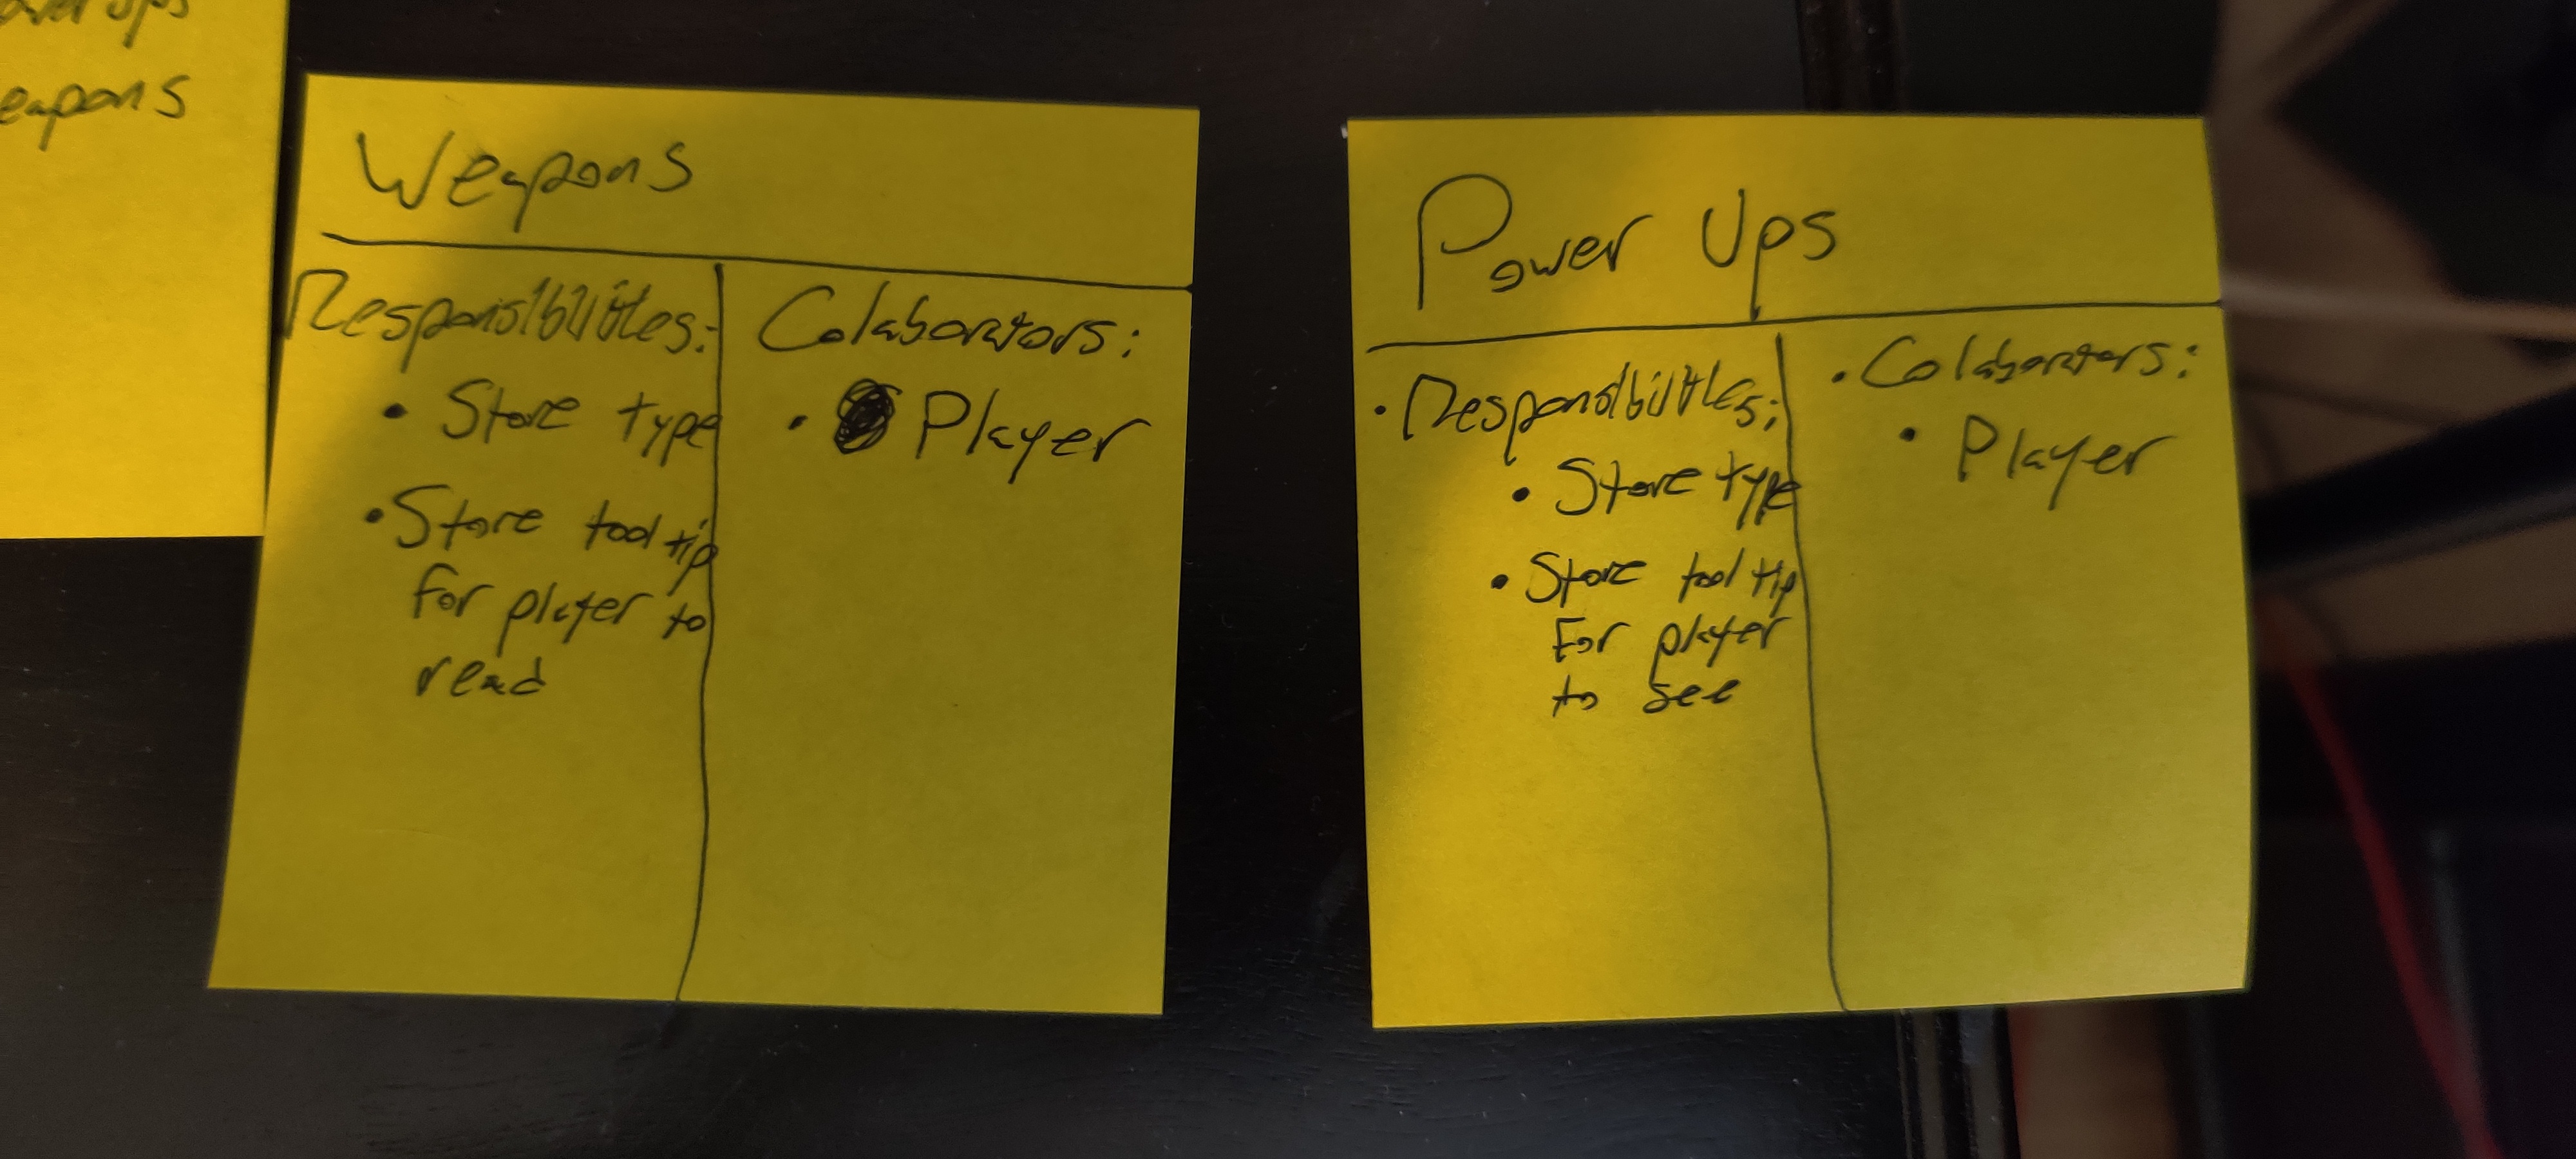 eapons
Weapons
Responsibilities:
• Store type
• Store tool tip
for player to
read
Colaborators:
• Player
Power Ups
• Responsibilities:
• Store type
• Store tool tip
For player
to see
• Colaborators:
• Player